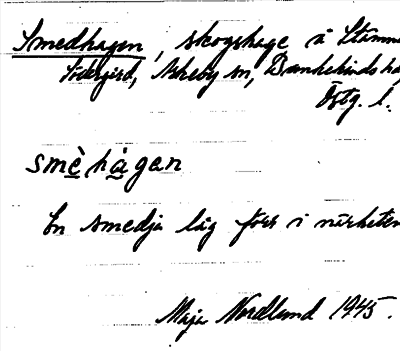 Smedhagen, skogshage å Stämma
Södergård, Askeby sn, Bankekinds hd
Östg. l.
smèhàgen
En smedja låg förr i närheten
Maja Nordlund 1945.